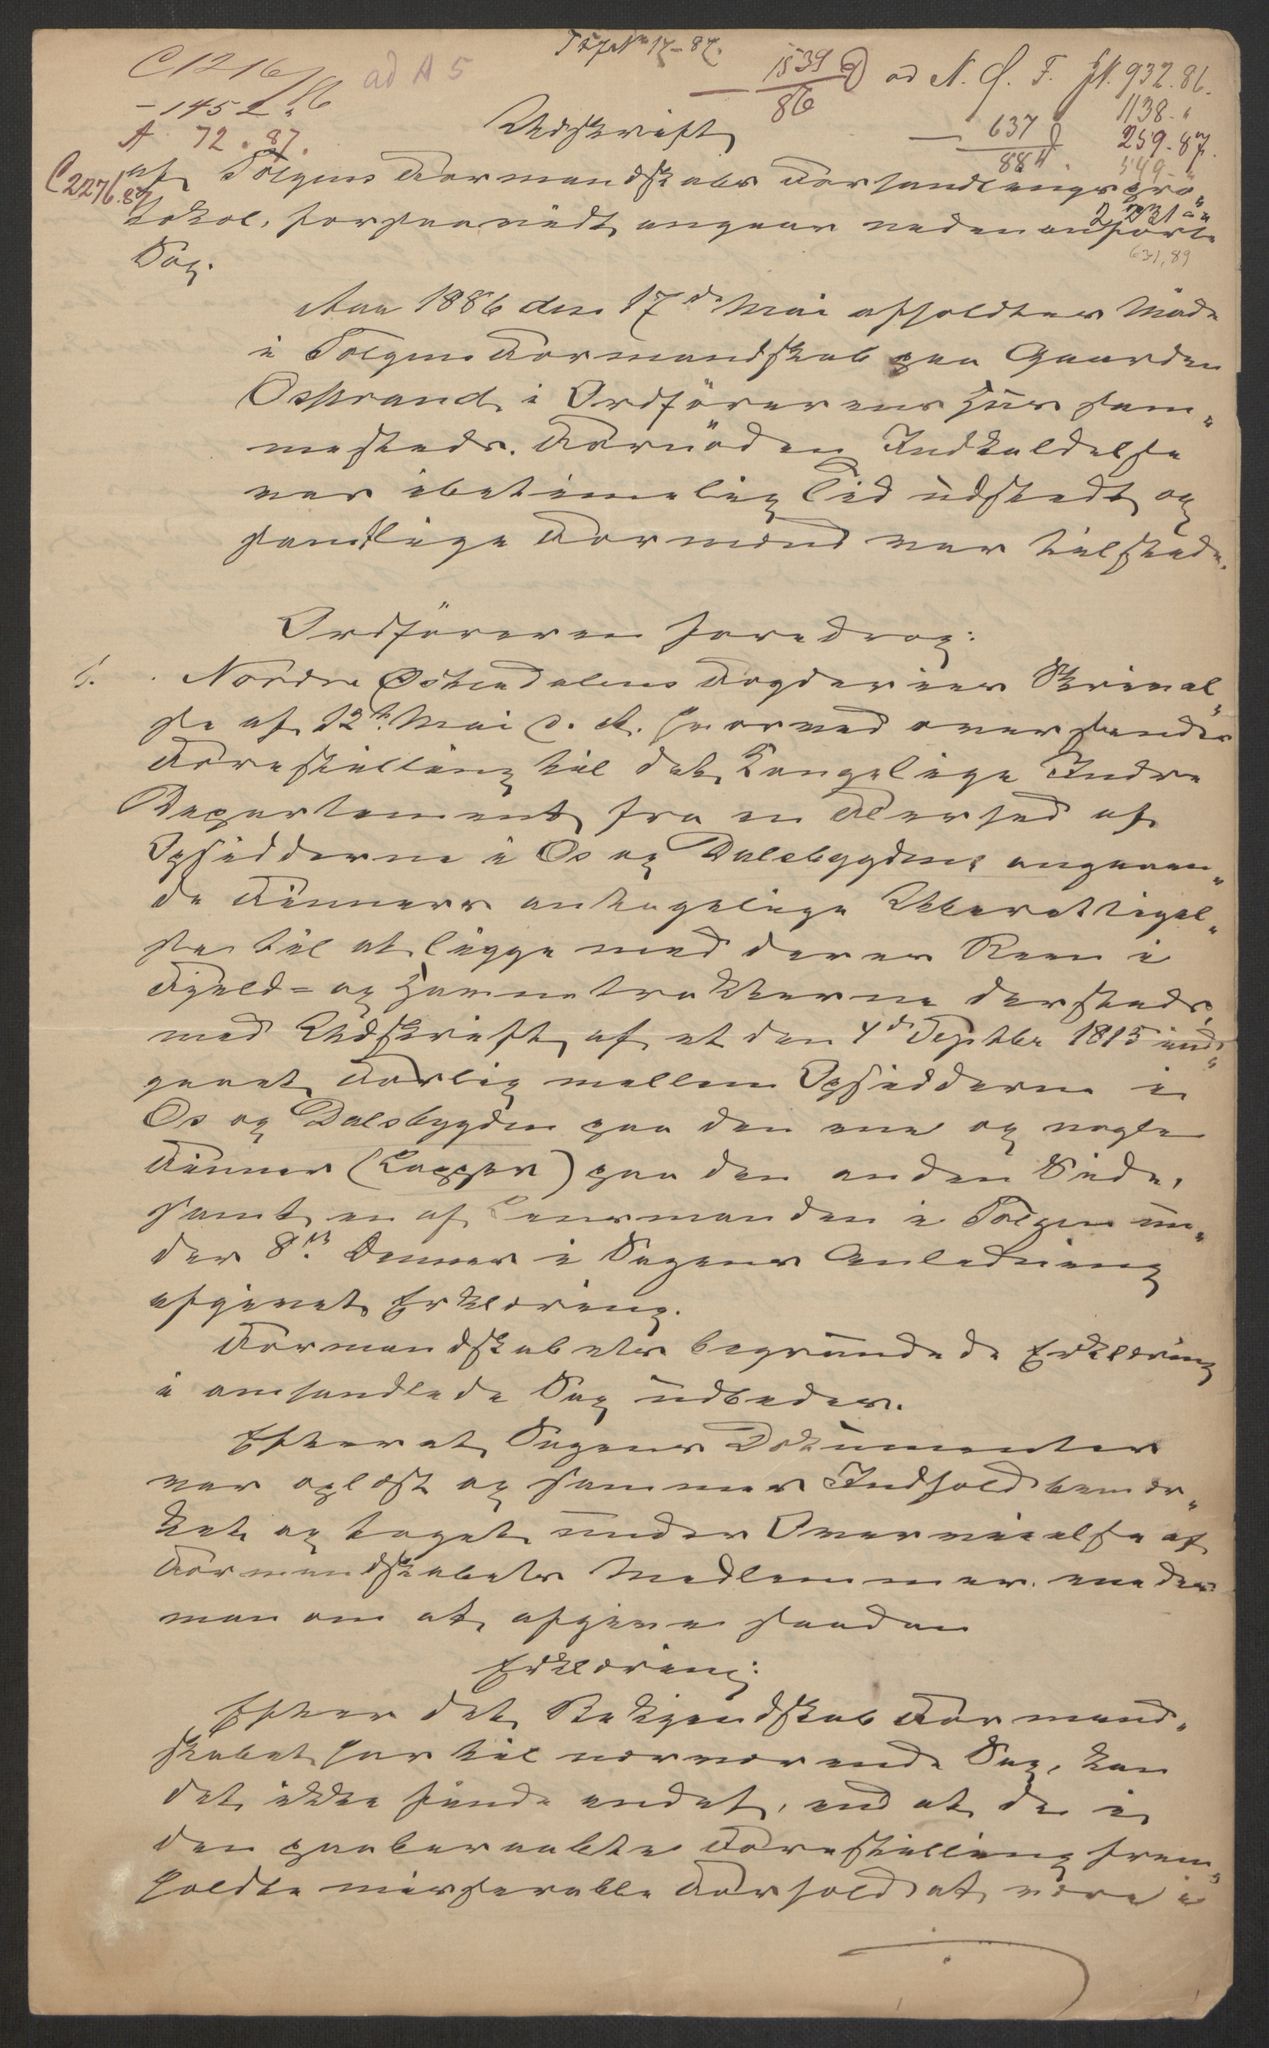 T 27 No 17-87.
C 1216/86
ad A 5
1539/86
ad N. Ö. F. Jl. 932. 86.
- 1452 "
1138 - "
A 72. 87.
637/88
259 - 87.
Udskrift
549 - "
C 2276. 87
af Tolgens Formandskabs Forhandlingspro-
2231 - "
tokol, forsaavidt angaar nedenanførte
631, 89
Sag.
Aar 1886 den 17de Mai afholdtes Møde
i Tolgens Formandskab paa Gaarden
Osstrand i Ordførerens Huus sam-
mesteds. Fornøden Indkaldelse
var i betimelig Tid udstedt og
samtlige Formænd var tilstede.
Ordføreren foredrog:
6. Nordre Østerdalens Fogderies Skrivel-
se af 12te Mai d. A. hvorved oversendes
Forestilling til det Kongelige Indre
Departement fra en Fleerhed af
Opsidderne i Os og Dalsbygden, angaaen-
de Finners antagelige Uberettigel-
se til at ligge med deres Reen i
Fjeld- og Havnetrakterne dersteds,
med Udskrift af et den 4de Septbr 1815 ind-
gaaet Forlig mellem Opsidderne i
Os og Dalsbygden paa den ene og nogle
Finner (Lapper) paa den anden Side,
samt en af Lensmanden i Tolgen un-
der 8de Dennes i Sagens Anledning
afgivet Erklæring.
Formandskabets begrundede Erklæring
i omhandlede Sag udbedes.
Efterat Sagens Dokumenter
var oplæst og sammes Indhold bemær-
ket og taget under Overveielse af
Formandskabets Medlemmer, enedes
man om at afgive saadan
Erklæring:
Efter det Bekjendskab Formand-
skabet har til nærværende Sag, kan
det ikke finde andet, end at de i
den paaberaabte Forestilling frem-
holdte miserable Forhold at være i